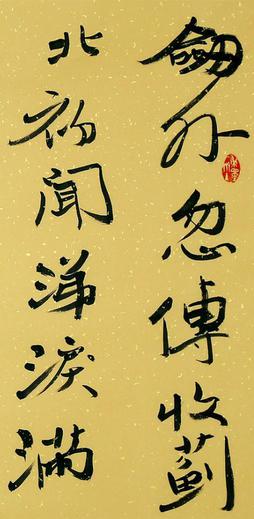 劒外忽傳收薊
北初聞涕淚滿